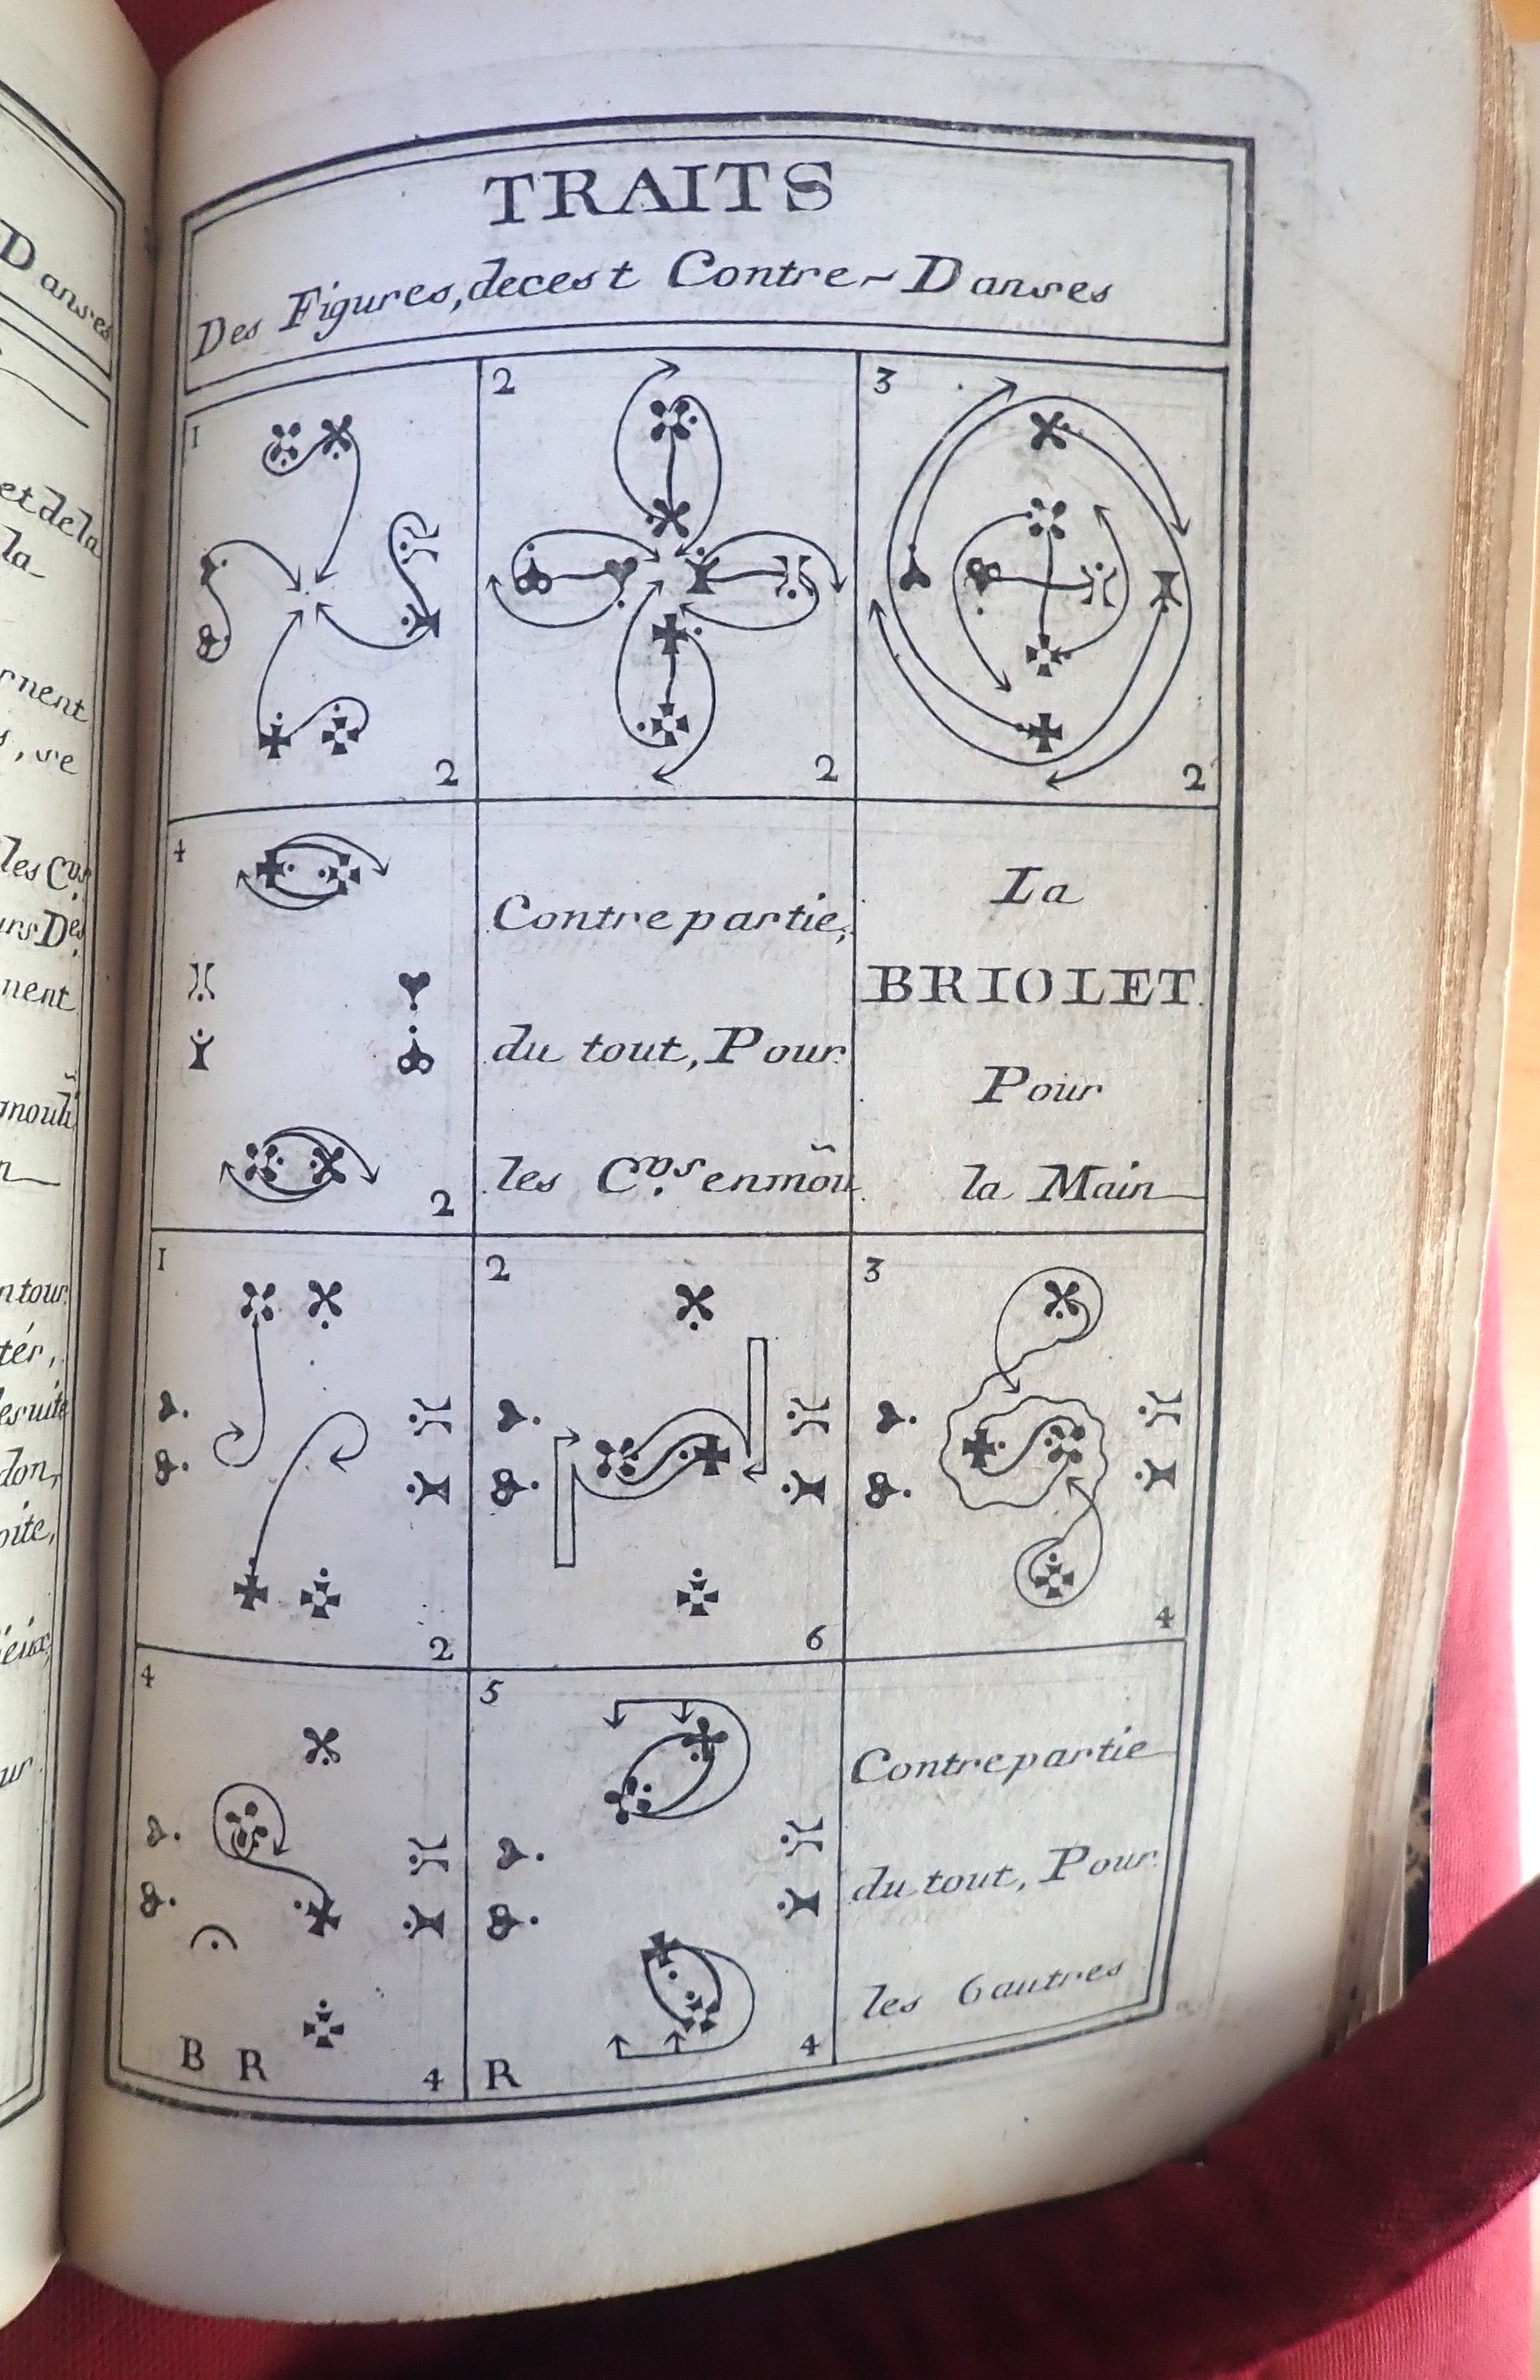 Danses
et de la
la
rnent
, se
les C.os
urs D.es
nent
n tour
ter,
don,
oite,
ieux,
ur
TRAITS
Des Figures, decest Contre-Danses
1
2
3
2
2
2
4
2
Contre partie,
du tout, Pour
les C.os enmõu
La
BRIOLET
Pour
la Main
1
2
3
2
6
4
4
B R
4
5
R
4
Contre partie
du tout, Pour
les 6 autres